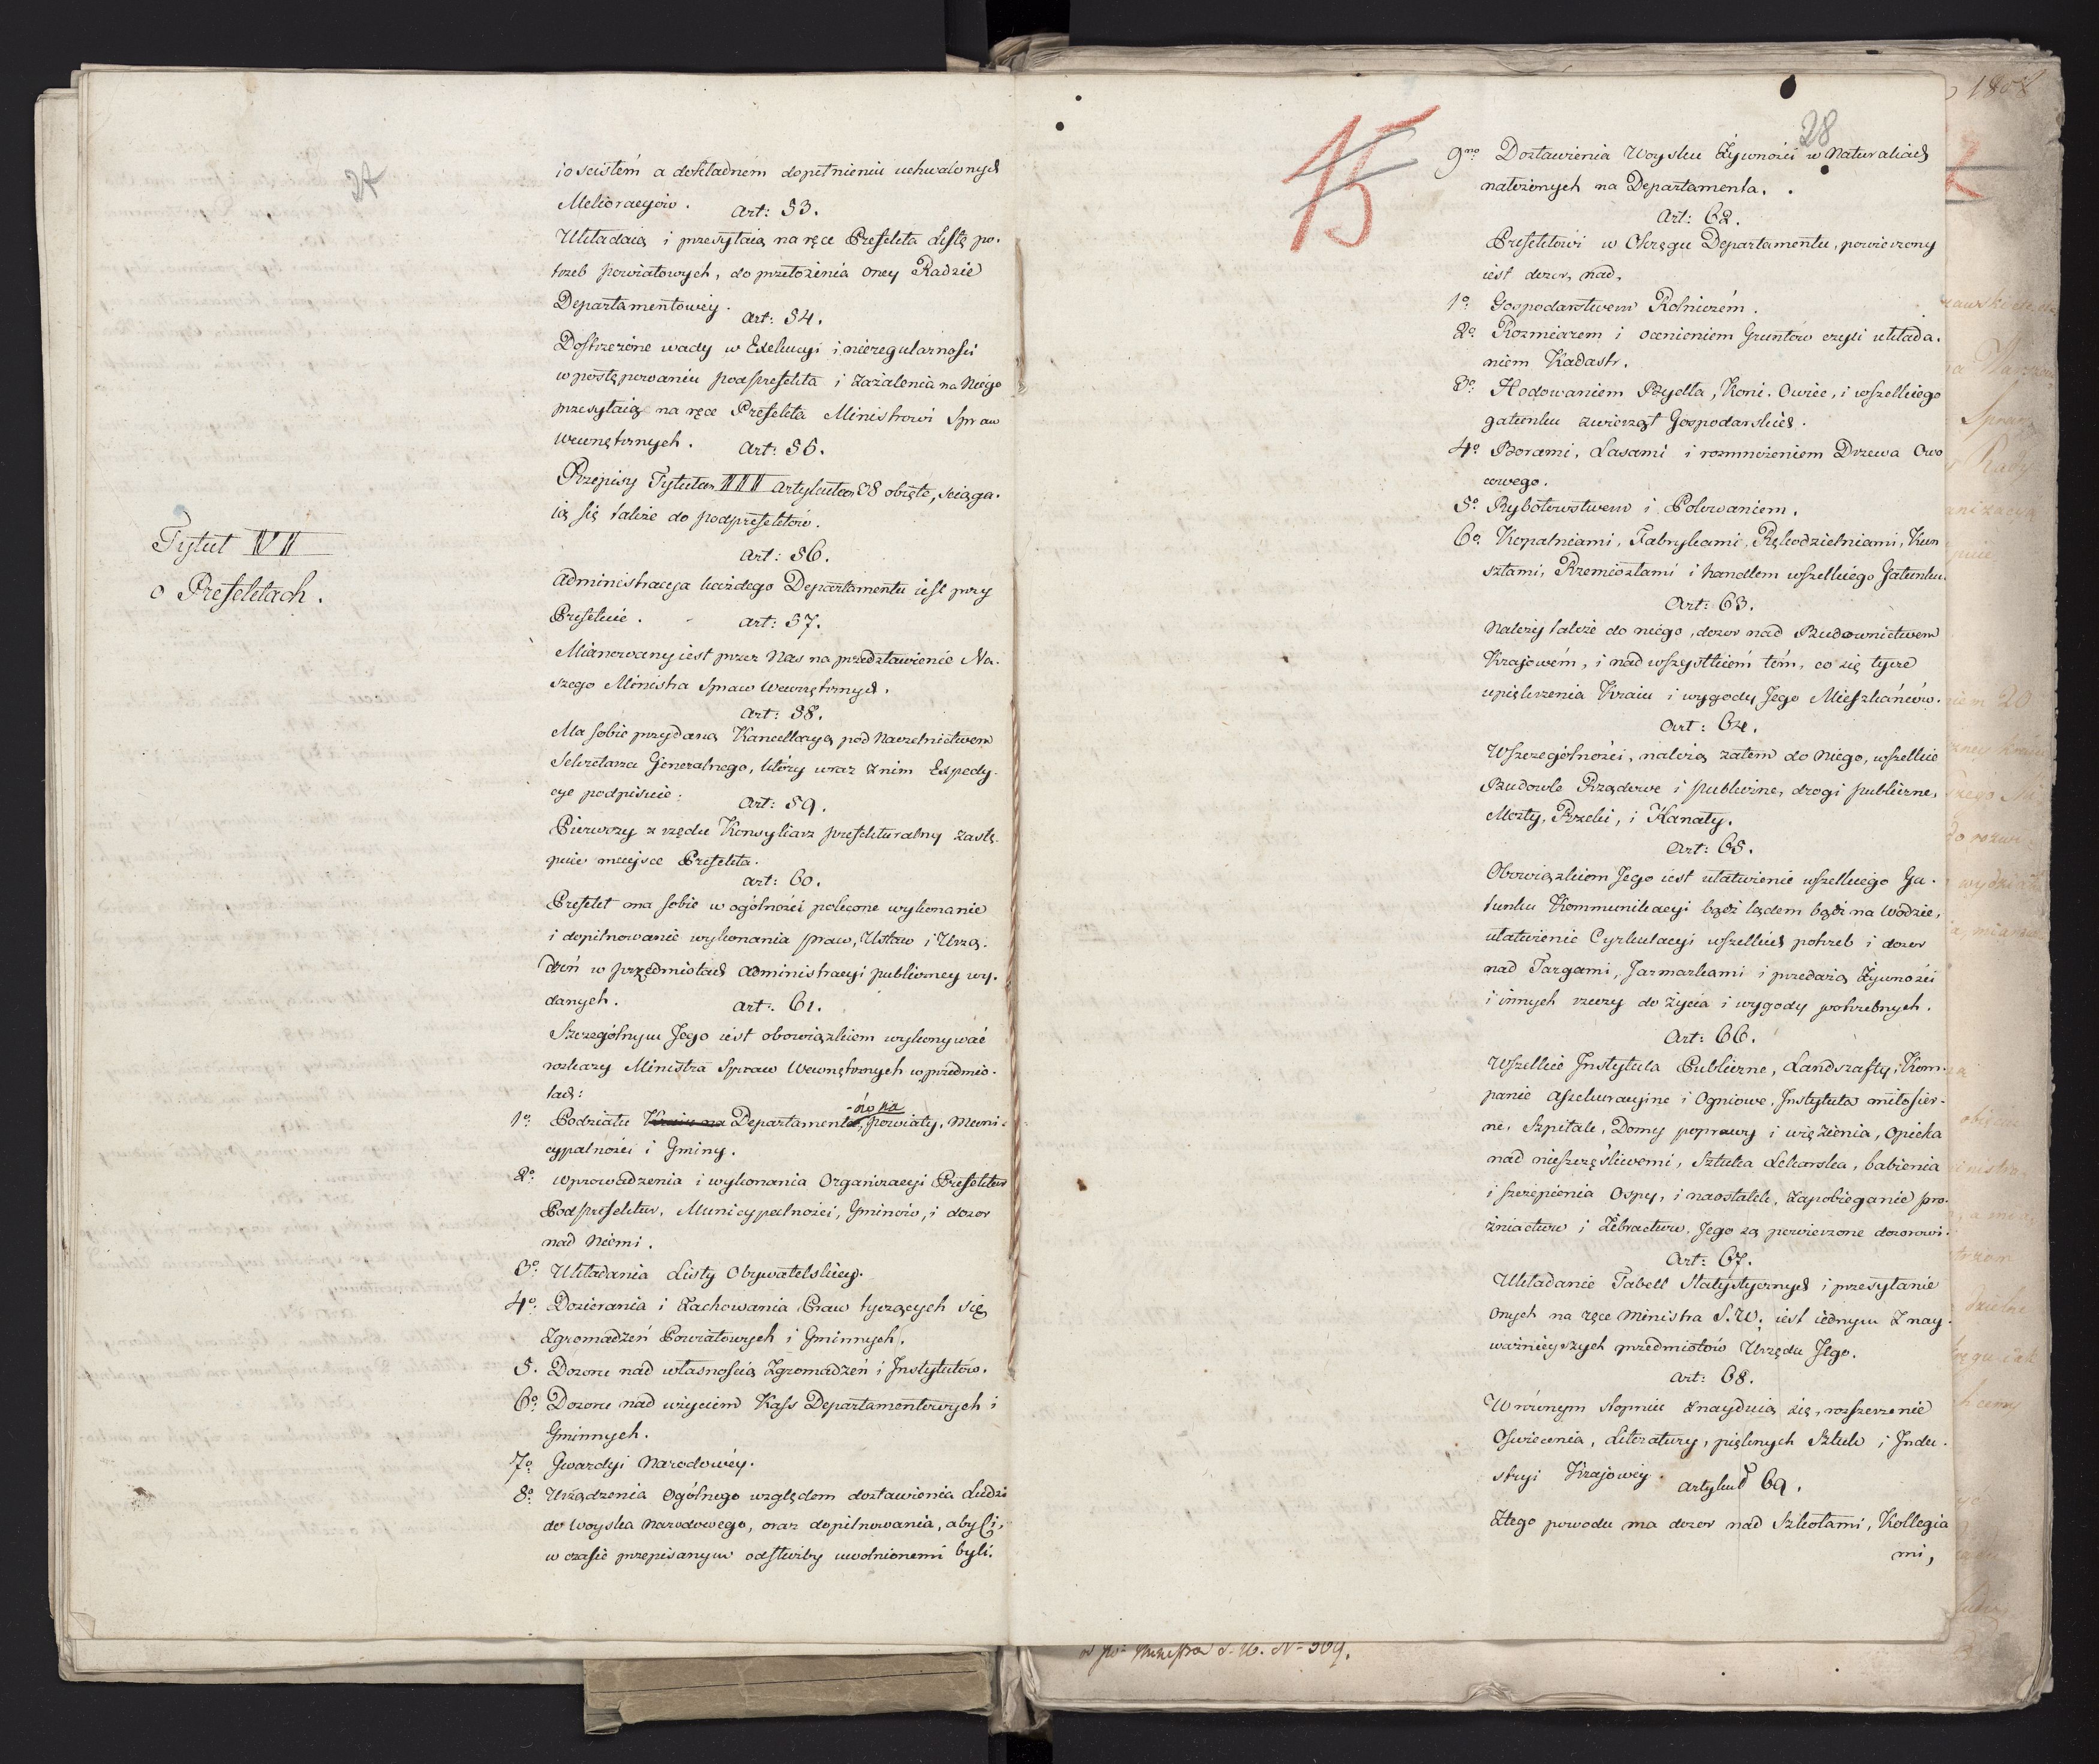 27
io scisłém a dokładném dopełnieniu uchwalonych
Melioracyiów.
Art: 53.
Układaią i przesyłaią na ręce Prefekta Listę po-
trzeb powiatowych, do przełożenia oney Radzie
Departamentowéy.
Art: 54.
Dostrzeżone wady w Exekucyi i nieregularności
w postępowaniu podprefekta i zażalenia na Niego
przesyłaią na ręce Prefekta Ministrowi Spraw
Wewnętrznych.
Art: 55.
Przepisy Tytułem III Artykułem 38 obięte, sciąga-
ią się także do podprefektów.
Tytuł VII
o Prefektach.
Art: 56.
Administracya każdego Departamentu iest przy
Prefekcie.
Art: 57.
Mianowany iest przez Nas na przedstawienie Na-
szego Ministra Spraw Wewnętrznych.
Art: 58.
Ma sobie przydaną Kancellaryą pod Naczelnictwem
Sekretarza Generalnego, który wraz z nim Expedy-
cye podpisuie.
Art: 59.
Pierwszy z rzędu Konsyliarz prefekturalny zastę-
puie mieysce Prefekta.
Art: 60.
Prefekt ma sobie w ogólności polecone wykonanie
i dopilnowanie wykonania praw, Ustaw i Urzą-
dzeń w przedmiotach Administracyi publiczney wy-
danych.
Art: 61.
Szczególnym Jego iest obowiązkiem wykonywać
rozkazy Ministra Spraw Wewnętrznych w przedmio-
tach:
1o Podziału Kraiu na Departamenta, -ów na powiaty, Muni-
cypalności i Gminy.
2o wprowadzenia i wykonania Organizacyi Prefektur
Podprefektur, Municypalności, Gminów, i dozor
nad Niemi.
3o Układania Listy Obywatelskiey.
4o Dozierania i Zachowania Praw tyczących się
Zgromadzeń Powiatowych i Gminnych.
5. Dozoru nad własnością Zgromadzeń i Instytutów.
6o Dozoru nad użyciem Kass Departamentowych i
Gminnych.
7o Gwardyi Narodowéy.
8o Urządzenia Ogólnego względem dostawienia Ludzi
do Woyska Narodowego, oraz dopilnowania, aby Ci,
w czasie przepisanym odsłużby uwolnionemi byli.
15
28
9no Dostawienia Woysku Żywności w Naturaliach
nałożonych na Departamenta.
Art: 62.
Prefektowi w Okręgu Departamentu, powierzony
iest dozor, nad,
1o Gospodarstwem Rolniczém.
2o Rozmiarem i ocenieniem Gruntów czyli układa-
niem Kadastr.
3o Hodowaniem Bydła, Koni, Owiec, i wszelkiego
gatunku zwierząt Gospodarskich.
4o Borami, Lasami i rozmnożeniem Drzewa Owo
cowego.
5o Rybołowstwem i Polowaniem.
6o Kopalniami, Fabrykami, Rękodzielniami, Kun
sztami, Rzemiosłami i handlem wszelkiego Gatunku.
Art: 63.
Należy także do niego, dozor nad Budownictwem
Krajowém, i nad wszystkiém tém, co się tycze
upiękrzenia Kraiu i wygody Jego Mieszkańców.
Art: 64.
Wszczególności, należą zatem do Niego, wszelkie
Budowle Rządowe i publiczne, drogi publiczne,
Mosty, Rzeki, i Kanały.
Art: 65.
Obowiązkiem Jego iest ułatwienie wszelkiego Ga-
tunku Kommunikacyi bądź lądem bądź na Wodzie,
ułatwienie Cyrkulacyi wszelkich potrzeb i dozor
nad Targami, Jarmarkami i przedażą Żywności
i innych rzeczy do życia i wygody potrzebnych.
Art: 66.
Wszelkie Instytuta Publiczne, Landszafty, Kom-
panie Assekuracyine i Ogniowe, Instytuta miłosier-
ne, Szpitale, Domy poprawy i więzienia, Opieka
nad nieszczęśliwemi, Sztuka Lekarska, babienia
i szczepienia Ospy, i naostatek, Zapobieganie pro-
żniactwu i Żebractwu, Jego są powierzone dozorowi.
Art: 67.
Układanie Tabell Statystycznych i przesyłanie
onych na ręce Ministra S.W. iest iednym z nay-
ważnieyszych przedmiotów Urzędu Jego.
Art: 68.
W równym stopniu znayduią się, rozszerzenie
Oświecenia, Literatury, pięknych Sztuk i Indu-
stryi Krajowéy.
Artykuł 69.
Ztego powodu ma dozor nad Szkołami, Kollegia
mi,